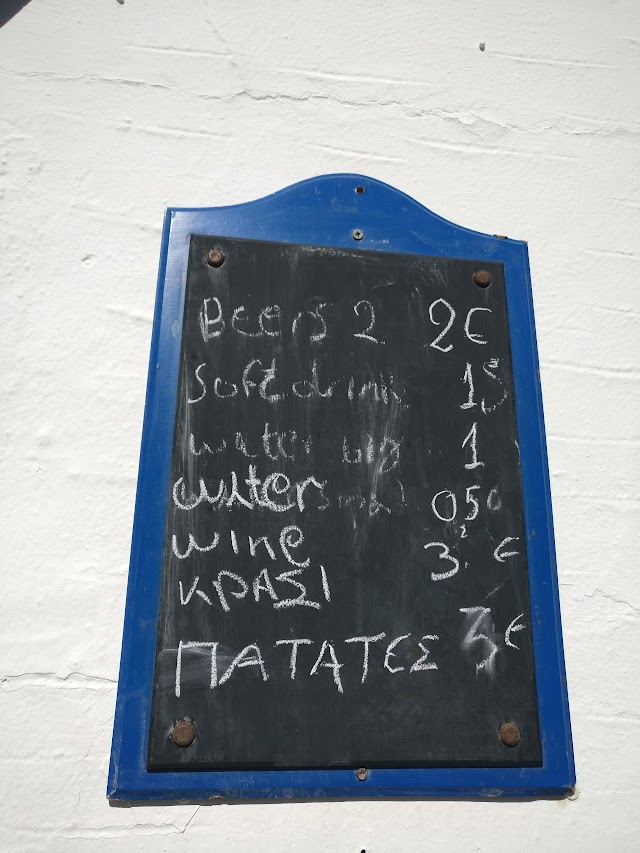 Beers 2 2€
Soft drink 1
water big 1
water small 050
wine 3. €
ΚΡΑΣΙ
ΠΑΤΑΤΕΣ 3€